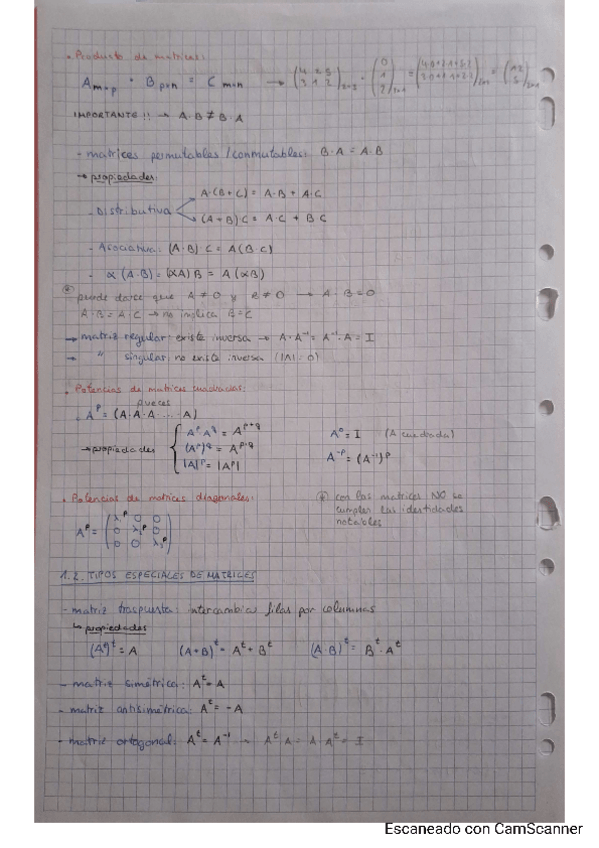 • Producto de matrices:
A m×p • B p×n = C m×n → (4 2 3 / 3 1 2) 2×3 • (0 / 1 / 2) 3×1
IMPORTANTE!! → A·B ≠ B·A
- matrices permutables / conmutables: B·A = A·B
→ propiedades:
- Distributiva
A·(B+C) = A·B + A·C
(A+B)·C = A·C + B·C
- Asociativa: (A·B)·C = A(B·C)
- α(A·B) = (αA)B = A(αB)
puede darse que A≠0 y B≠0 → A·B=0
A·B = A·C → no implica B=C
→ matriz regular: existe inversa → A·A⁻¹ = A⁻¹·A = I
→ " singular: no existe inversa (|A|=0)
• Potencias de matrices cuadradas:
p veces
Aᵖ = (A·A·A·...·A)
→ propiedades
Aᵖ A^q = A^(p+q)
(Aᵖ)^q = A^(p·q)
|A|ᵖ = |Aᵖ|
A⁰ = I (A cuadrada)
A⁻ᵖ = (A⁻¹)ᵖ
• Potencias de matrices diagonales:
Aᵖ = (λ₁ᵖ 0 0 / 0 λ₂ᵖ 0 / 0 0 λ₃ᵖ)
con las matrices NO se
cumplen las identidades
notables
1.2. TIPOS ESPECIALES DE MATRICES
- matriz traspuesta: intercambiar filas por columnas
↳ propiedades
(Aᵗ)ᵗ = A (A+B)ᵗ = Aᵗ + Bᵗ (A·B)ᵗ = Bᵗ·Aᵗ
- matriz simétrica: Aᵗ = A
- matriz antisimétrica: Aᵗ = -A
- matriz ortogonal: Aᵗ = A⁻¹ → Aᵗ·A = A·Aᵗ = I
Escaneado con CamScanner